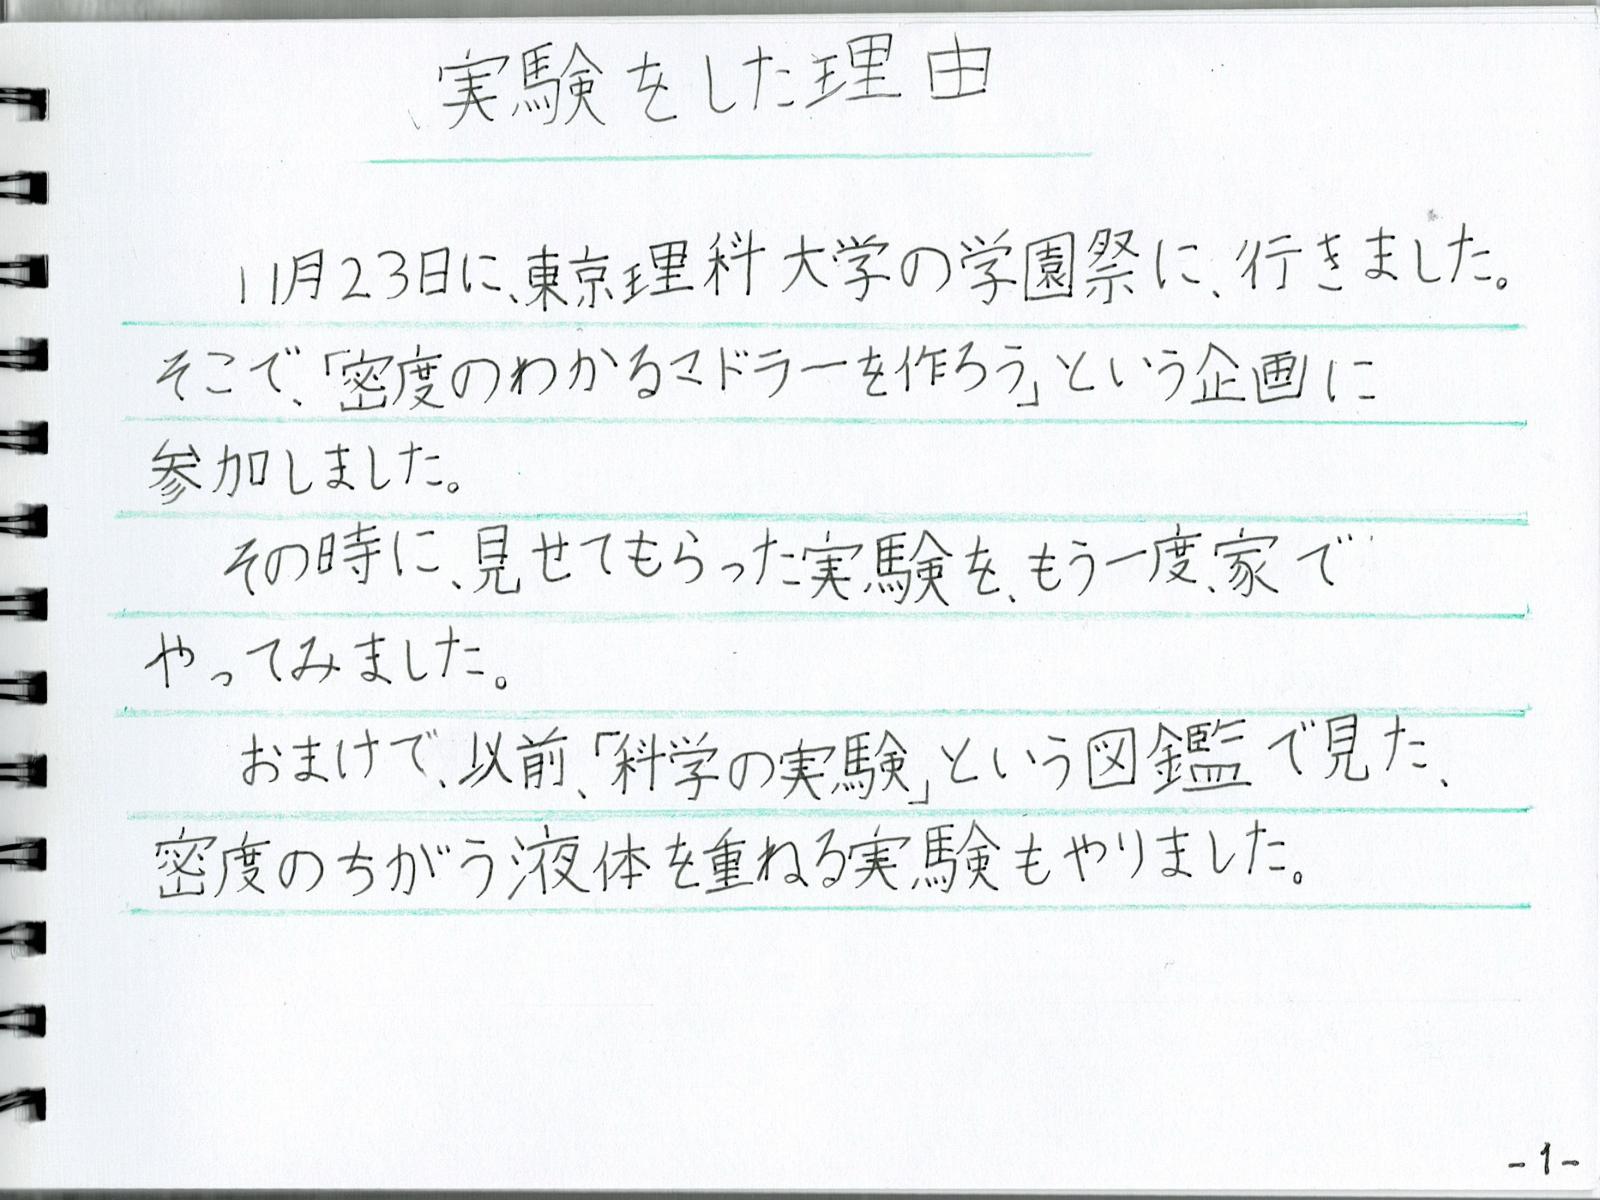 実験をした理由
11月23日に、東京理科大学の学園祭に、行きました。
そこで、「密度のわかるマドラーを作ろう」という企画に
参加しました。
その時に、見せてもらった実験を、もう一度、家で
やってみました。
おまけで、以前、「科学の実験」という図鑑で見た、
密度のちがう液体を重ねる実験もやりました。
-1-